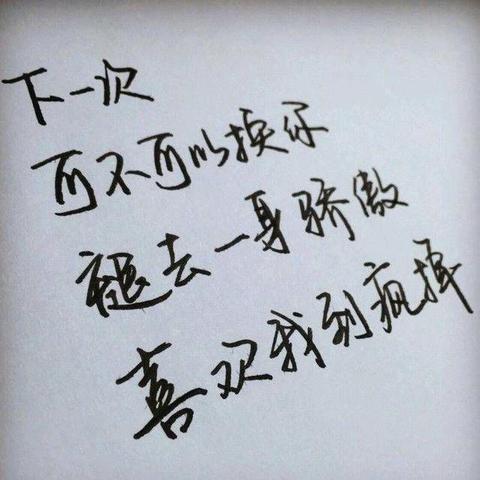 下一次
可不可以换你
褪去一身骄傲
喜欢我到疯掉